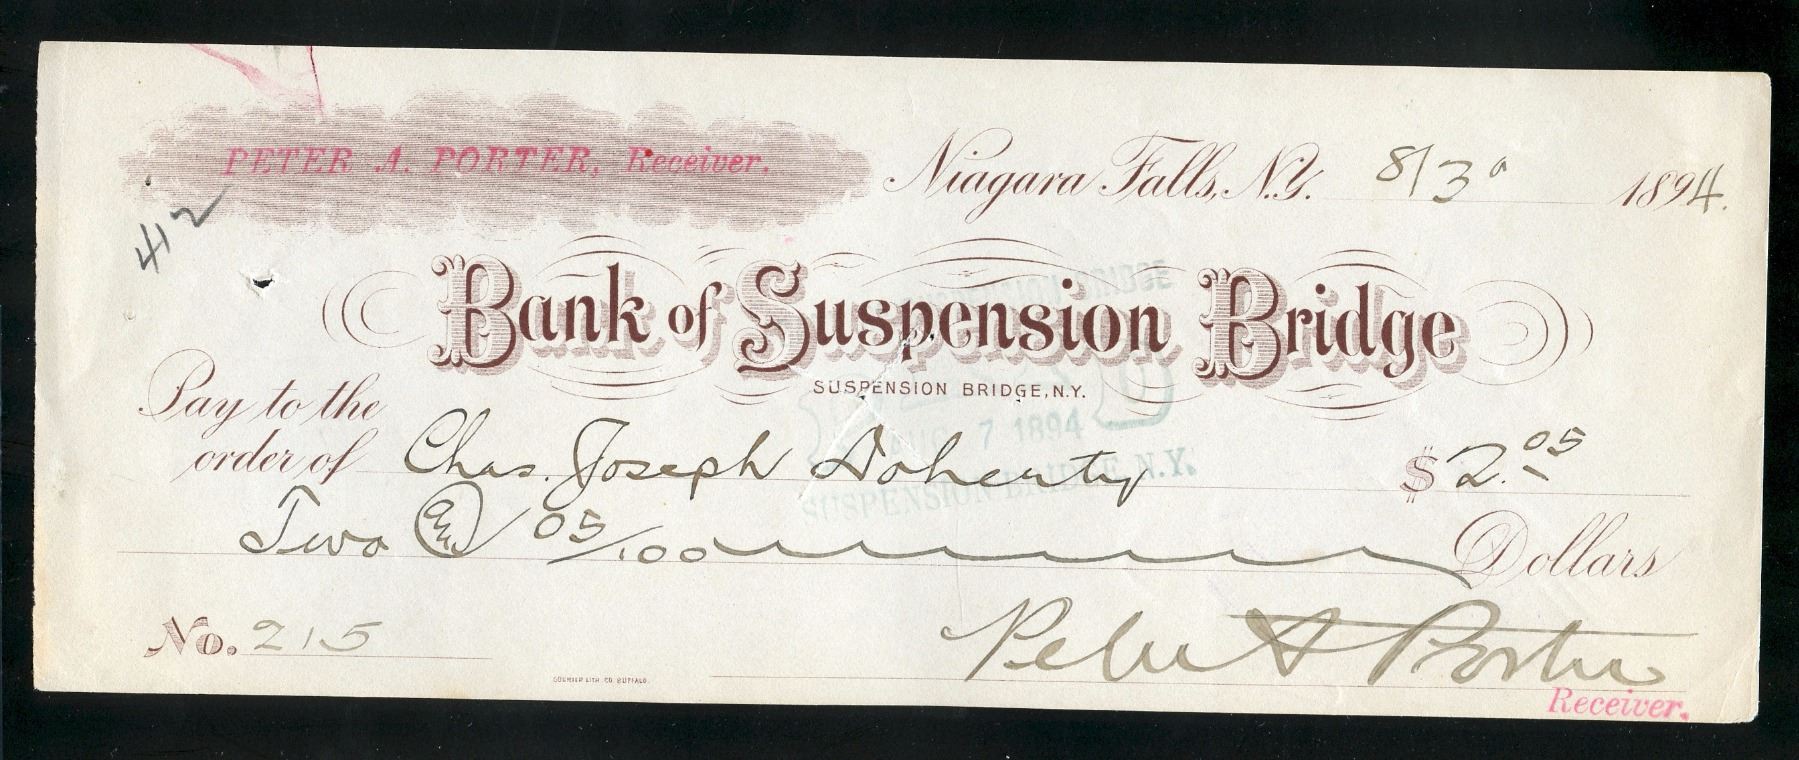 PETER A. PORTER, Receiver.
Niagara Falls, N.Y. 8/30 1894.
412
Bank of Suspension Bridge
SUSPENSION BRIDGE, N.Y.
Pay to the
order of Chas. Joseph Doherty $2.05
Two 05/100 Dollars
SUSPENSION BRIDGE
PAID
7 1894
SUSPENSION BRIDGE, N.Y.
No. 215
Peter A Porter
COURIER LITH. CO. BUFFALO.
Receiver.